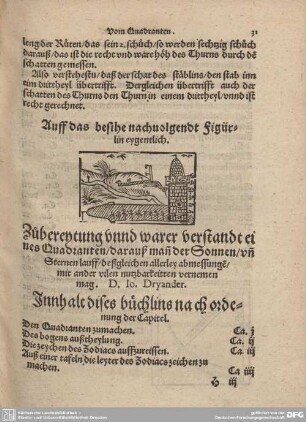 Vom Quadranten. 31
leng der Růten/das sein 2. schůch/so werden sechtzig schůch
darauß/das ist die recht vnd ware höh des Thurns durch dē
schatten gemessen.
Also verstehestu/daß der schat des stäblins/den stab inn
ein dritteyl übertrifft. Dergleichen übertrifft auch der
schatten des Thurns den Thurn in einem dritteyl/vnnd ist
recht gerechnet.
Auff das besihe nachuolgendt Figür-
lin eygentlich.
Zůbereytung vnnd warer verstandt ei
nes Quadranten/darauß mañ der Sonnen/vñ
Sternen lauff/deßgleichen allerley abmessungē/
mit ander vilen nutzbarkeitten vernemen
mag. D. Io. Dryander.
Jnnhalt dises büchlins nach orde-
nung der Capitel.
Den Quadranten zumachen. Ca. j
Des bogens außtheylung. Ca. ij
Die zeychen des Zodiacs auffzureissen. Ca. iij
Auß einer tafeln/die letzter des Zodiacs zeichen zu
machen. Ca iiij
H iij